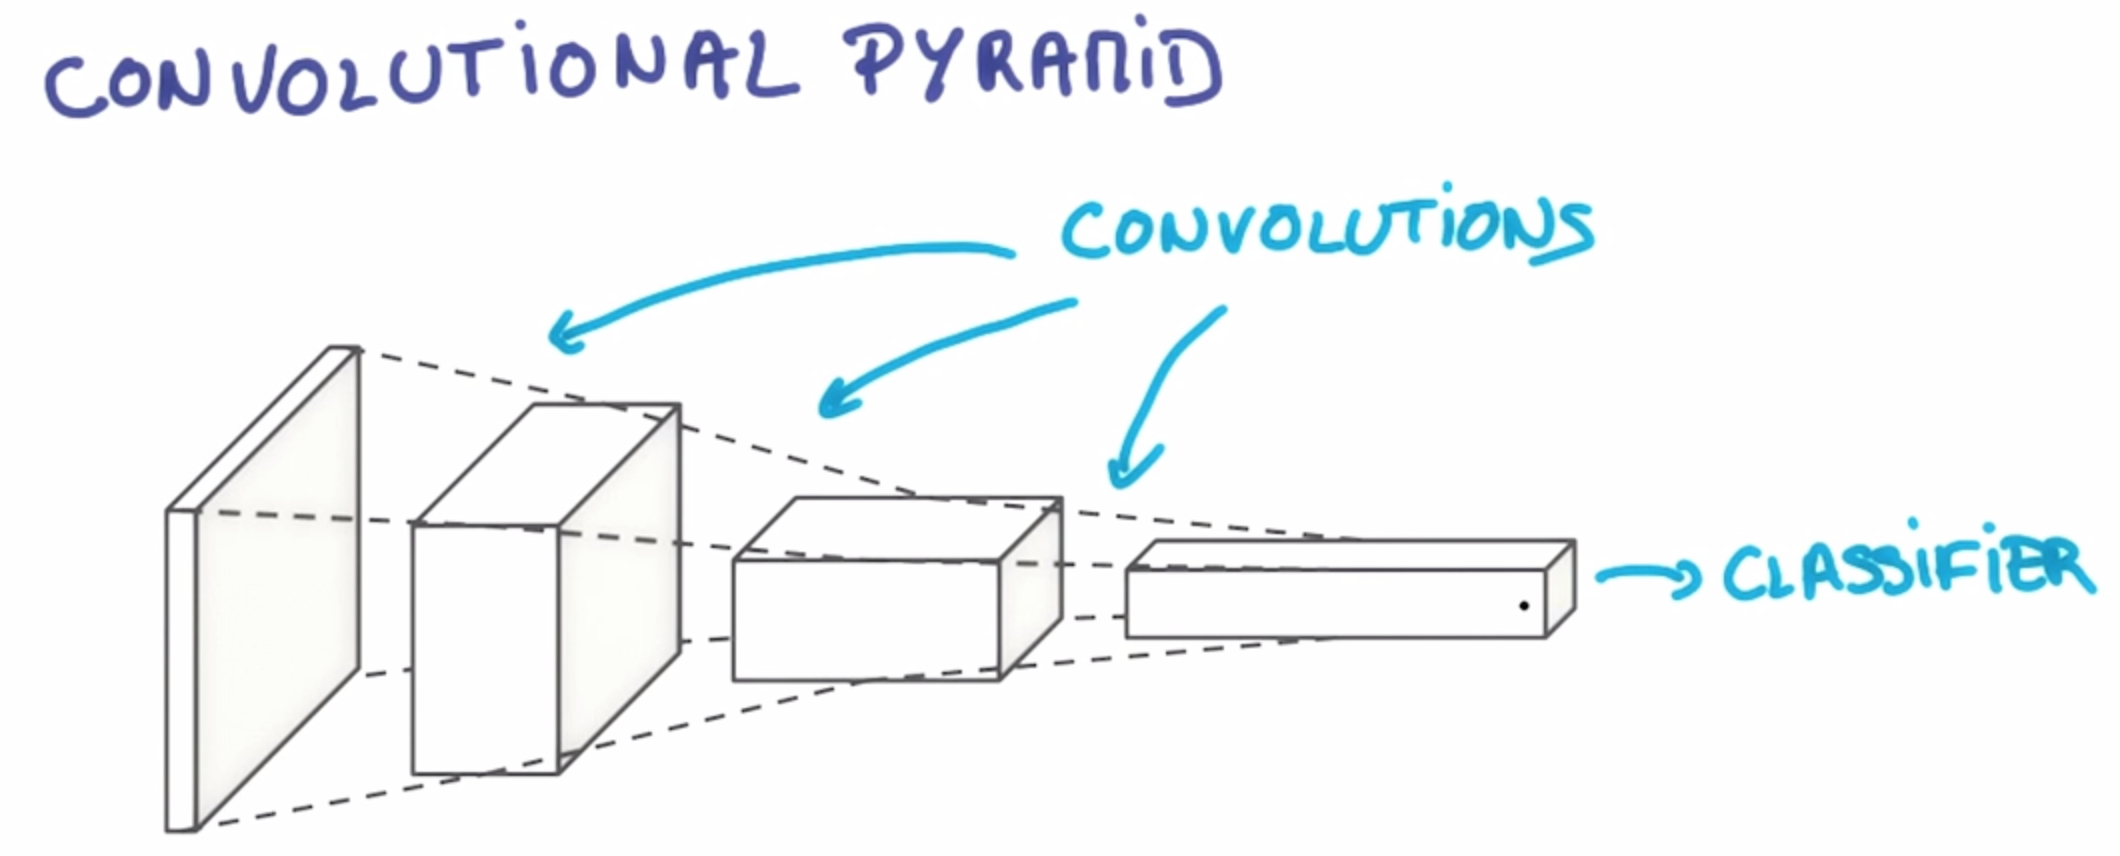 CONVOLUTIONAL PYRAMiD
CONVOLUTiONS
CLASSiFiER